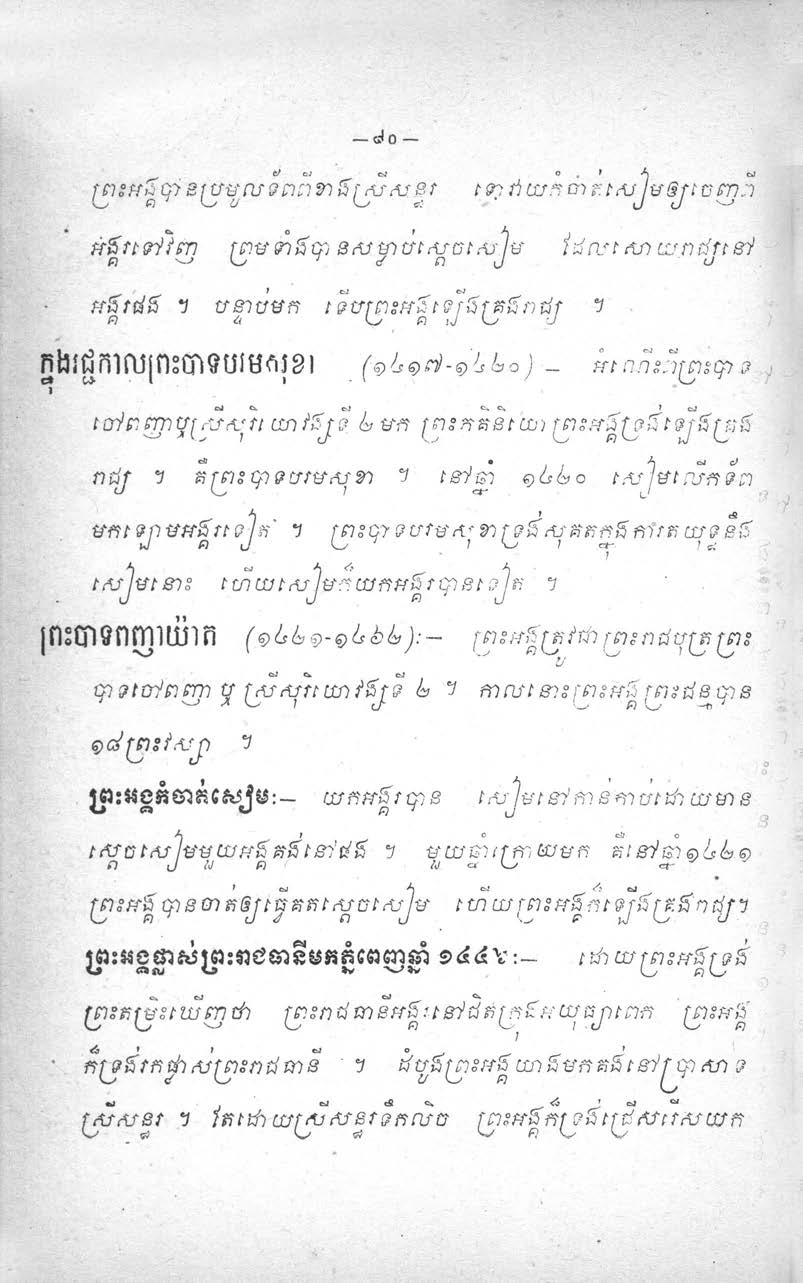 —៨០—
ព្រះអង្គបានប្រមូលទ័ពពីខាងស្រីសន្ធរ ទៅវាយកំចាត់សៀមឲ្យចេញពី
អង្គរទៅវិញ ព្រមទាំងបានសម្លាប់ស្ដេចសៀម ដែលសោយរាជ្យនៅ
អង្គរផង ។ បន្ទាប់មក ទើបព្រះអង្គឡើងគ្រងរាជ្យ ។
ក្នុងរជ្ជកាលព្រះបាទបរមសុខា (១៤១៧-១៤២០) — អំណើះពីព្រះបាទ
ចៅពញាឬស្រីសុរិយោវង្សទី ២ មក ព្រះភគិនិយោព្រះអង្គទ្រង់ឡើងគ្រង
រាជ្យ ។ គឺព្រះបាទបរមសុខា ។ នៅឆ្នាំ ១៤២០ សៀមលើកទ័ព
មកឡោមអង្គរទៀត ។ ព្រះបាទបរមសុខាទ្រង់សុគតក្នុងការតយុទ្ធនឹង
សៀមនោះ ហើយសៀមក៏យកអង្គរបានទៀត ។
ព្រះបាទពញាយ៉ាត (១៤២១-១៤៦២):— ព្រះអង្គត្រូវជាព្រះរាជបុត្រព្រះ
បាទចៅពញា ឬ ស្រីសុរិយោវង្សទី ២ ។ កាលនោះព្រះអង្គព្រះជន្មបាន
១៨ព្រះវស្សា ។
ព្រះអង្គកំចាត់សៀម:— យកអង្គរបាន សៀមនៅកាន់កាប់ដោយមាន
ស្ដេចសៀមមួយអង្គគង់នៅផង ។ មួយឆ្នាំក្រោយមក គឺនៅឆ្នាំ១៤២១
ព្រះអង្គបានចាត់ឲ្យធ្វើគតស្ដេចសៀម ហើយព្រះអង្គក៏ឡើងគ្រងរាជ្យ។
ព្រះអង្គផ្លាស់ព្រះរាជធានីមកភ្នំពេញឆ្នាំ :— ដោយព្រះអង្គទ្រង់
ព្រះតម្រិះឃើញថា ព្រះរាជធានីអង្គរនៅជិតក្រុងអយុធ្យាពេក ព្រះអង្គ
ក៏ទ្រង់រកផ្លាស់ព្រះរាជធានី ។ ដំបូងព្រះអង្គយាងមកគង់នៅប្រាសាទ
ស្រីសន្ធរ ។ តែដោយស្រីសន្ធរទឹកលិច ព្រះអង្គក៏ទ្រង់ជ្រើសរើសយក